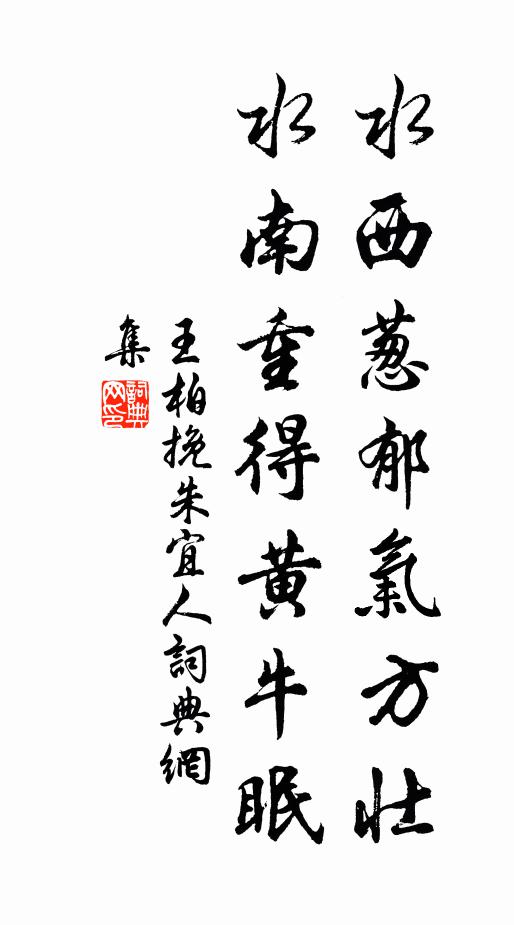 水西葱郁氣方壮
水南重得黄牛眠
王柏挽朱宜人詞典網
集
詞典網印